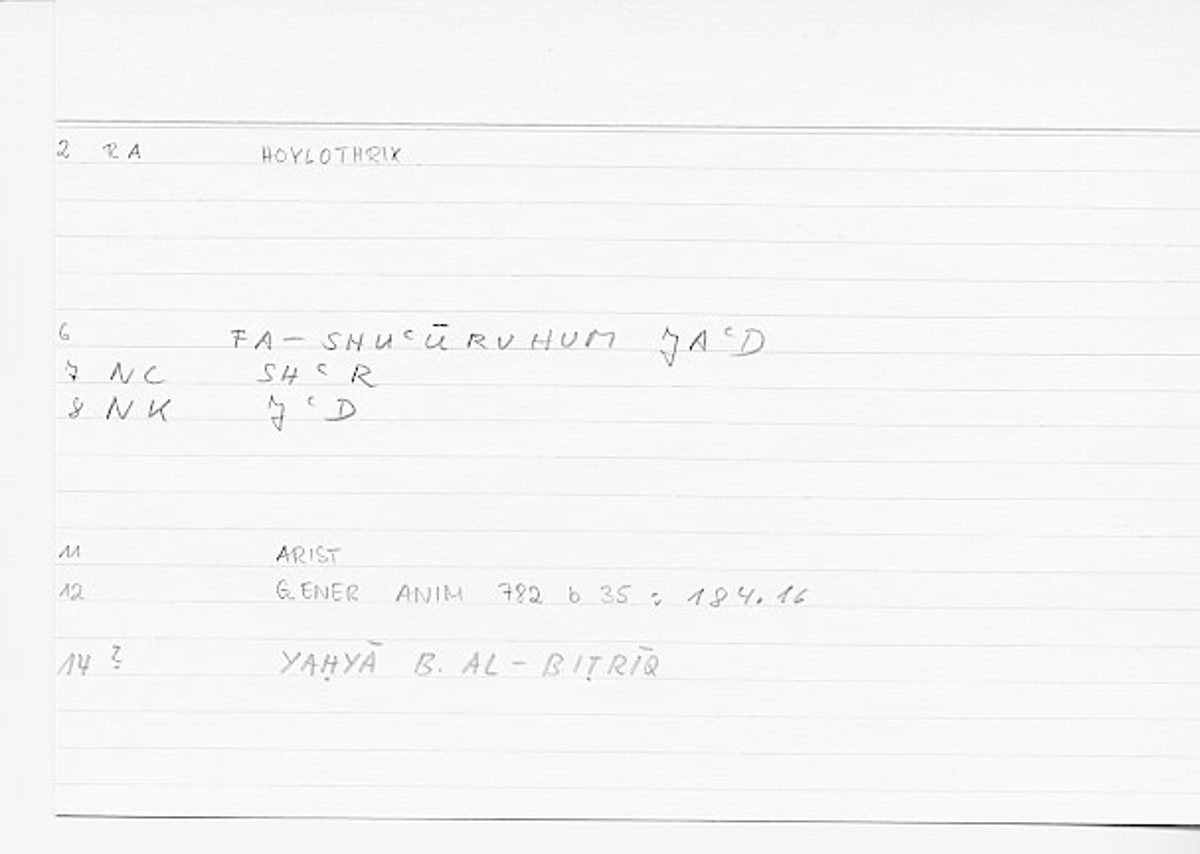 2 RA HOYLOTHRIX
6 FA-SHUᶜŪRUHUM JAᶜD
7 NC SHᶜR
8 NK JᶜD
11 ARIST
12 GENER ANIM 782 b 35 ; 184.16
14 ? YAḤYĀ B. AL-BIṬRĪQ